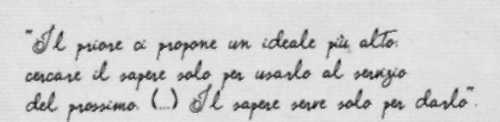 "Il priore ci propone un ideale più alto:
cercare il sapere solo per usarlo al servizio
del prossimo. (...) Il sapere serve solo per darlo".